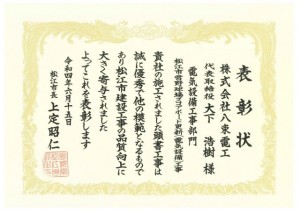 表彰状
株式会社八束電工
代表取締役 大下 浩樹 様
電気設備工事部門
松江市営野球場スコアボード更新電気設備工事
貴社の施工された頭書工事は
誠に優秀で他の模範となるもので
あり松江市建設工事の品質向上に
大きく寄与されました
よってこれを表彰します
令和四年六月十五日
松江市長 上定昭仁